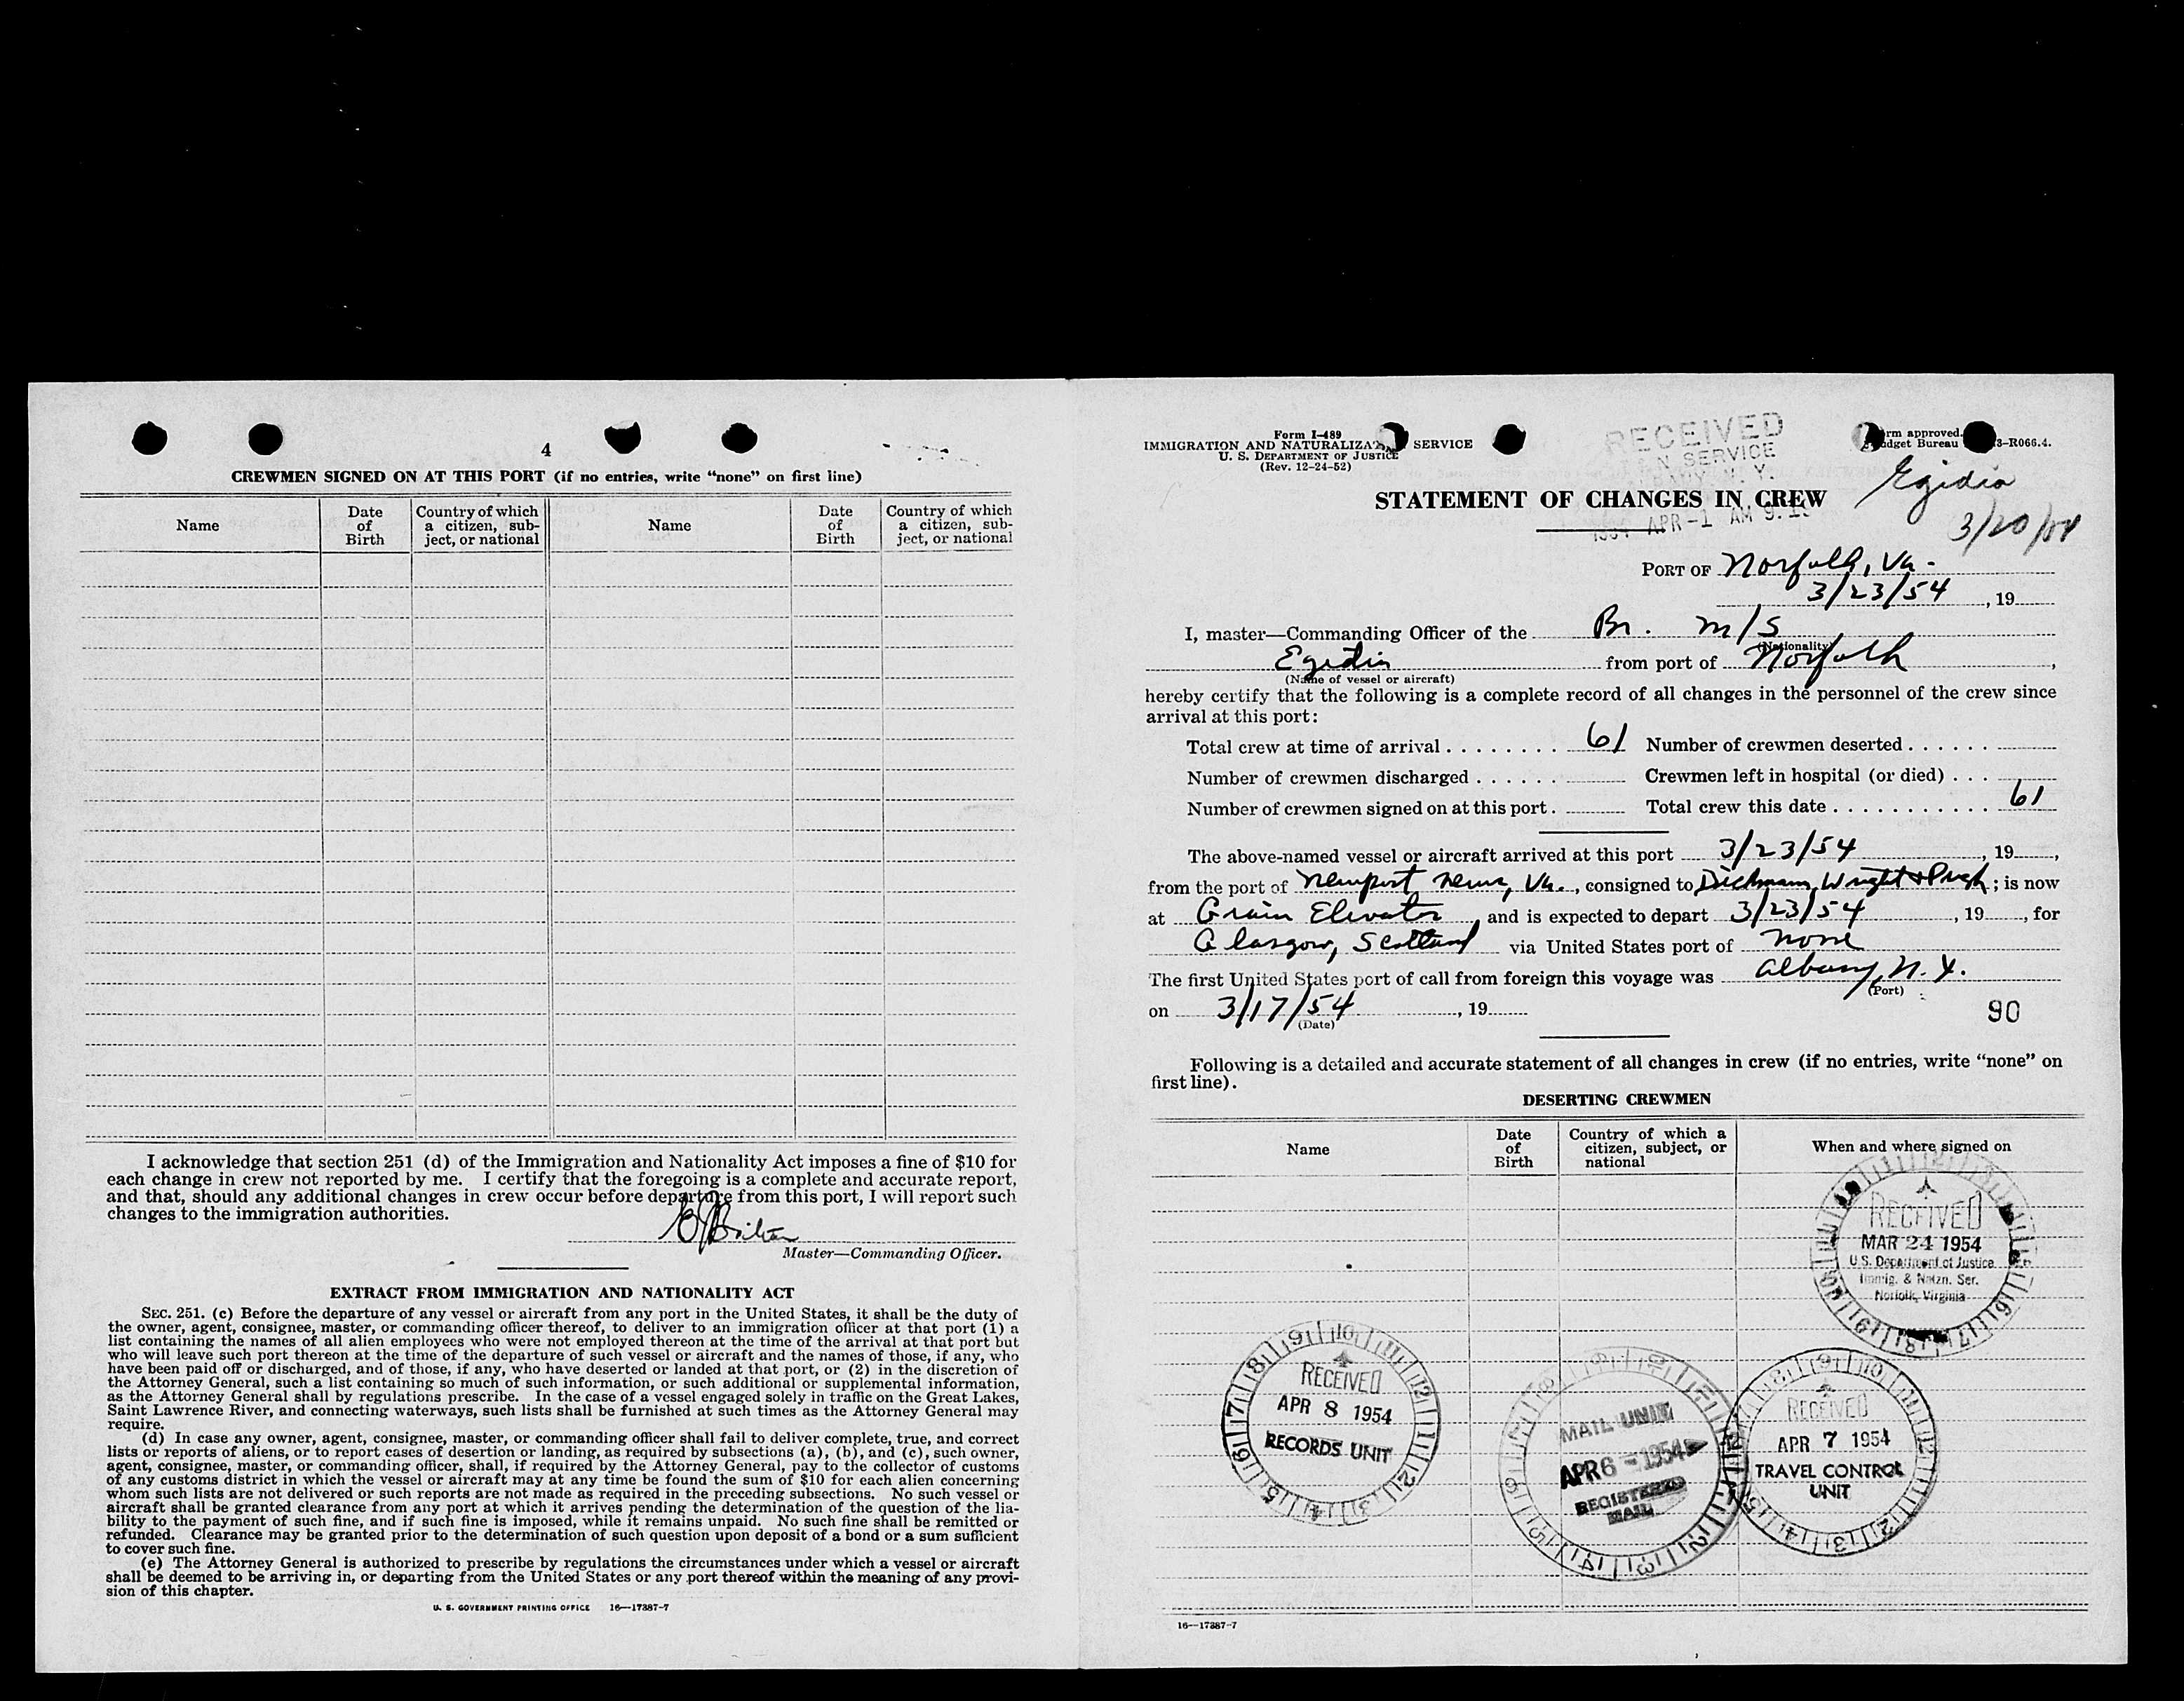 4
CREWMEN SIGNED ON AT THIS PORT (if no entries, write “none” on first line)
Name
Date of Birth
Country of which a citizen, sub-
ject, or national
Name
Date of Birth
Country of which a citizen, sub-
ject, or national
I acknowledge that section 251 (d) of the Immigration and Nationality Act imposes a fine of $10 for
each change in crew not reported by me. I certify that the foregoing is a complete and accurate report,
and that, should any additional changes in crew occur before departure from this port, I will report such
changes to the immigration authorities.
Master—Commanding Officer.
EXTRACT FROM IMMIGRATION AND NATIONALITY ACT
SEC. 251. (c) Before the departure of any vessel or aircraft from any port in the United States, it shall be the duty of
the owner, agent, consignee, master, or commanding officer thereof, to deliver to an immigration officer at that port (1) a
list containing the names of all alien employees who were not employed thereon at the time of the arrival at that port but
who will leave such port thereon at the time of the departure of such vessel or aircraft and the names of those, if any, who
have been paid off or discharged, and of those, if any, who have deserted or landed at that port, or (2) in the discretion of
the Attorney General, such a list containing so much of such information, or such additional or supplemental information,
as the Attorney General shall by regulations prescribe. In the case of a vessel engaged solely in traffic on the Great Lakes,
Saint Lawrence River, and connecting waterways, such lists shall be furnished at such times as the Attorney General may
require.
(d) In case any owner, agent, consignee, master, or commanding officer shall fail to deliver complete, true, and correct
lists or reports of aliens, or to report cases of desertion or landing, as required by subsections (a), (b), and (c), such owner,
agent, consignee, master, or commanding officer, shall, if required by the Attorney General, pay to the collector of customs
of any customs district in which the vessel or aircraft may at any time be found the sum of $10 for each alien concerning
whom such lists are not delivered or such reports are not made as required in the preceding subsections. No such vessel or
aircraft shall be granted clearance from any port at which it arrives pending the determination of the question of the lia-
bility to the payment of such fine, and if such fine is imposed, while it remains unpaid. No such fine shall be remitted or
refunded. Clearance may be granted prior to the determination of such question upon deposit of a bond or a sum sufficient
to cover such fine.
(e) The Attorney General is authorized to prescribe by regulations the circumstances under which a vessel or aircraft
shall be deemed to be arriving in, or departing from the United States or any port thereof within the meaning of any provi-
sion of this chapter.
U. S. GOVERNMENT PRINTING OFFICE 16—17387-7
Form I-489
IMMIGRATION AND NATURALIZA SERVICE
U. S. DEPARTMENT OF JUSTICE
(Rev. 12-24-52)
RECEIVED
SERVICE
N. Y.
APR -1 AM 9.
rm approved.
dget Bureau 3-R066.4.
Egidia
3/20/54
STATEMENT OF CHANGES IN CREW
PORT OF Norfolk, Va.
3/23/54, 19
I, master—Commanding Officer of the Br. M/S
(Nationality)
Egidia from port of Norfolk,
(Name of vessel or aircraft)
hereby certify that the following is a complete record of all changes in the personnel of the crew since
arrival at this port:
Total crew at time of arrival 61 Number of crewmen deserted
Number of crewmen discharged Crewmen left in hospital (or died)
Number of crewmen signed on at this port. Total crew this date 61
The above-named vessel or aircraft arrived at this port 3/23/54, 19,
from the port of Newport News, Va., consigned to Dichmann, Wright & Pugh; is now
at Grain Elevator, and is expected to depart 3/23/54, 19, for
Glasgow, Scotland via United States port of none
The first United States port of call from foreign this voyage was Albany, N.Y.
(Port)
on 3/17/54, 19
(Date)
90
Following is a detailed and accurate statement of all changes in crew (if no entries, write “none” on
first line).
DESERTING CREWMEN
Name
Date of Birth
Country of which a citizen, subject, or national
When and where signed on
RECEIVED
MAR 24 1954
U.S. Department of Justice
Immig. & Natzn. Ser.
Norfolk, Virginia
RECEIVED
APR 8 1954
RECORDS UNIT
MAIL UNIT
APR 6 - 1954
REGISTERED
MAIL
RECEIVED
APR 7 1954
TRAVEL CONTROL
UNIT
16—17387-7